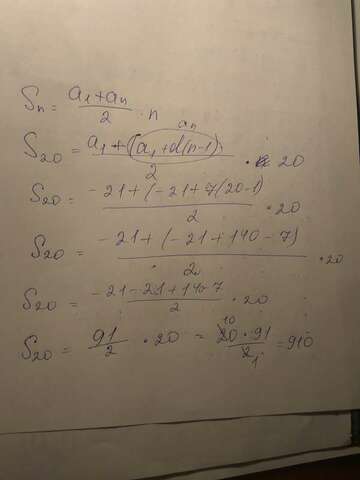 Sn = a1+an/2 · n
an
S20 = a1+(a1+d(n-1))/2 · 20
S20 = -21+(-21+7(20-1)/2 · 20
S20 = -21+(-21+140-7)/2 · 20
S20 = -21-21+140-7/2 · 20
S20 = 91/2 · 20 = 20·91/2 = 910
10
1